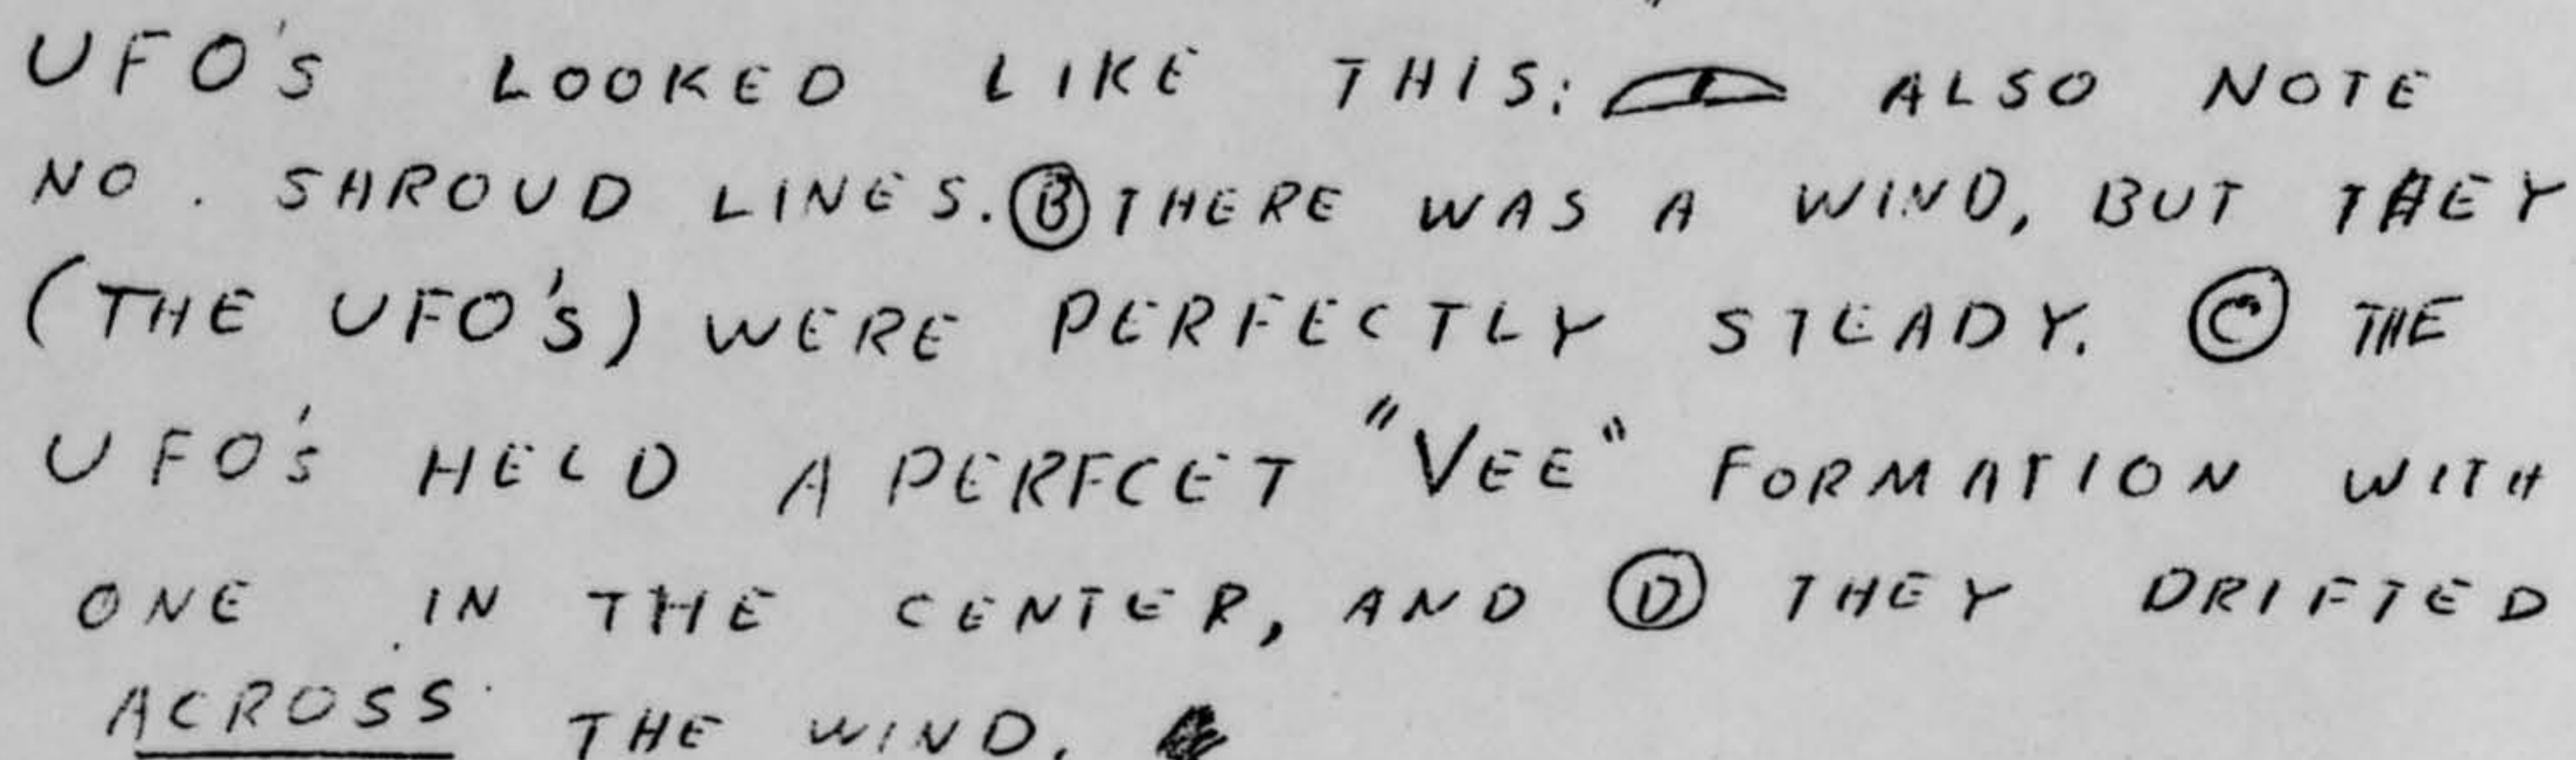 UFO's LOOKED LIKE THIS: ALSO NOTE
NO. SHROUD LINES. Ⓑ THERE WAS A WIND, BUT THEY
(THE UFO's) WERE PERFECTLY STEADY. Ⓒ THE
UFO's HELD A PERFCET "VEE" FORMATION WITH
ONE IN THE CENTER, AND Ⓓ THEY DRIFTED
ACROSS THE WIND.